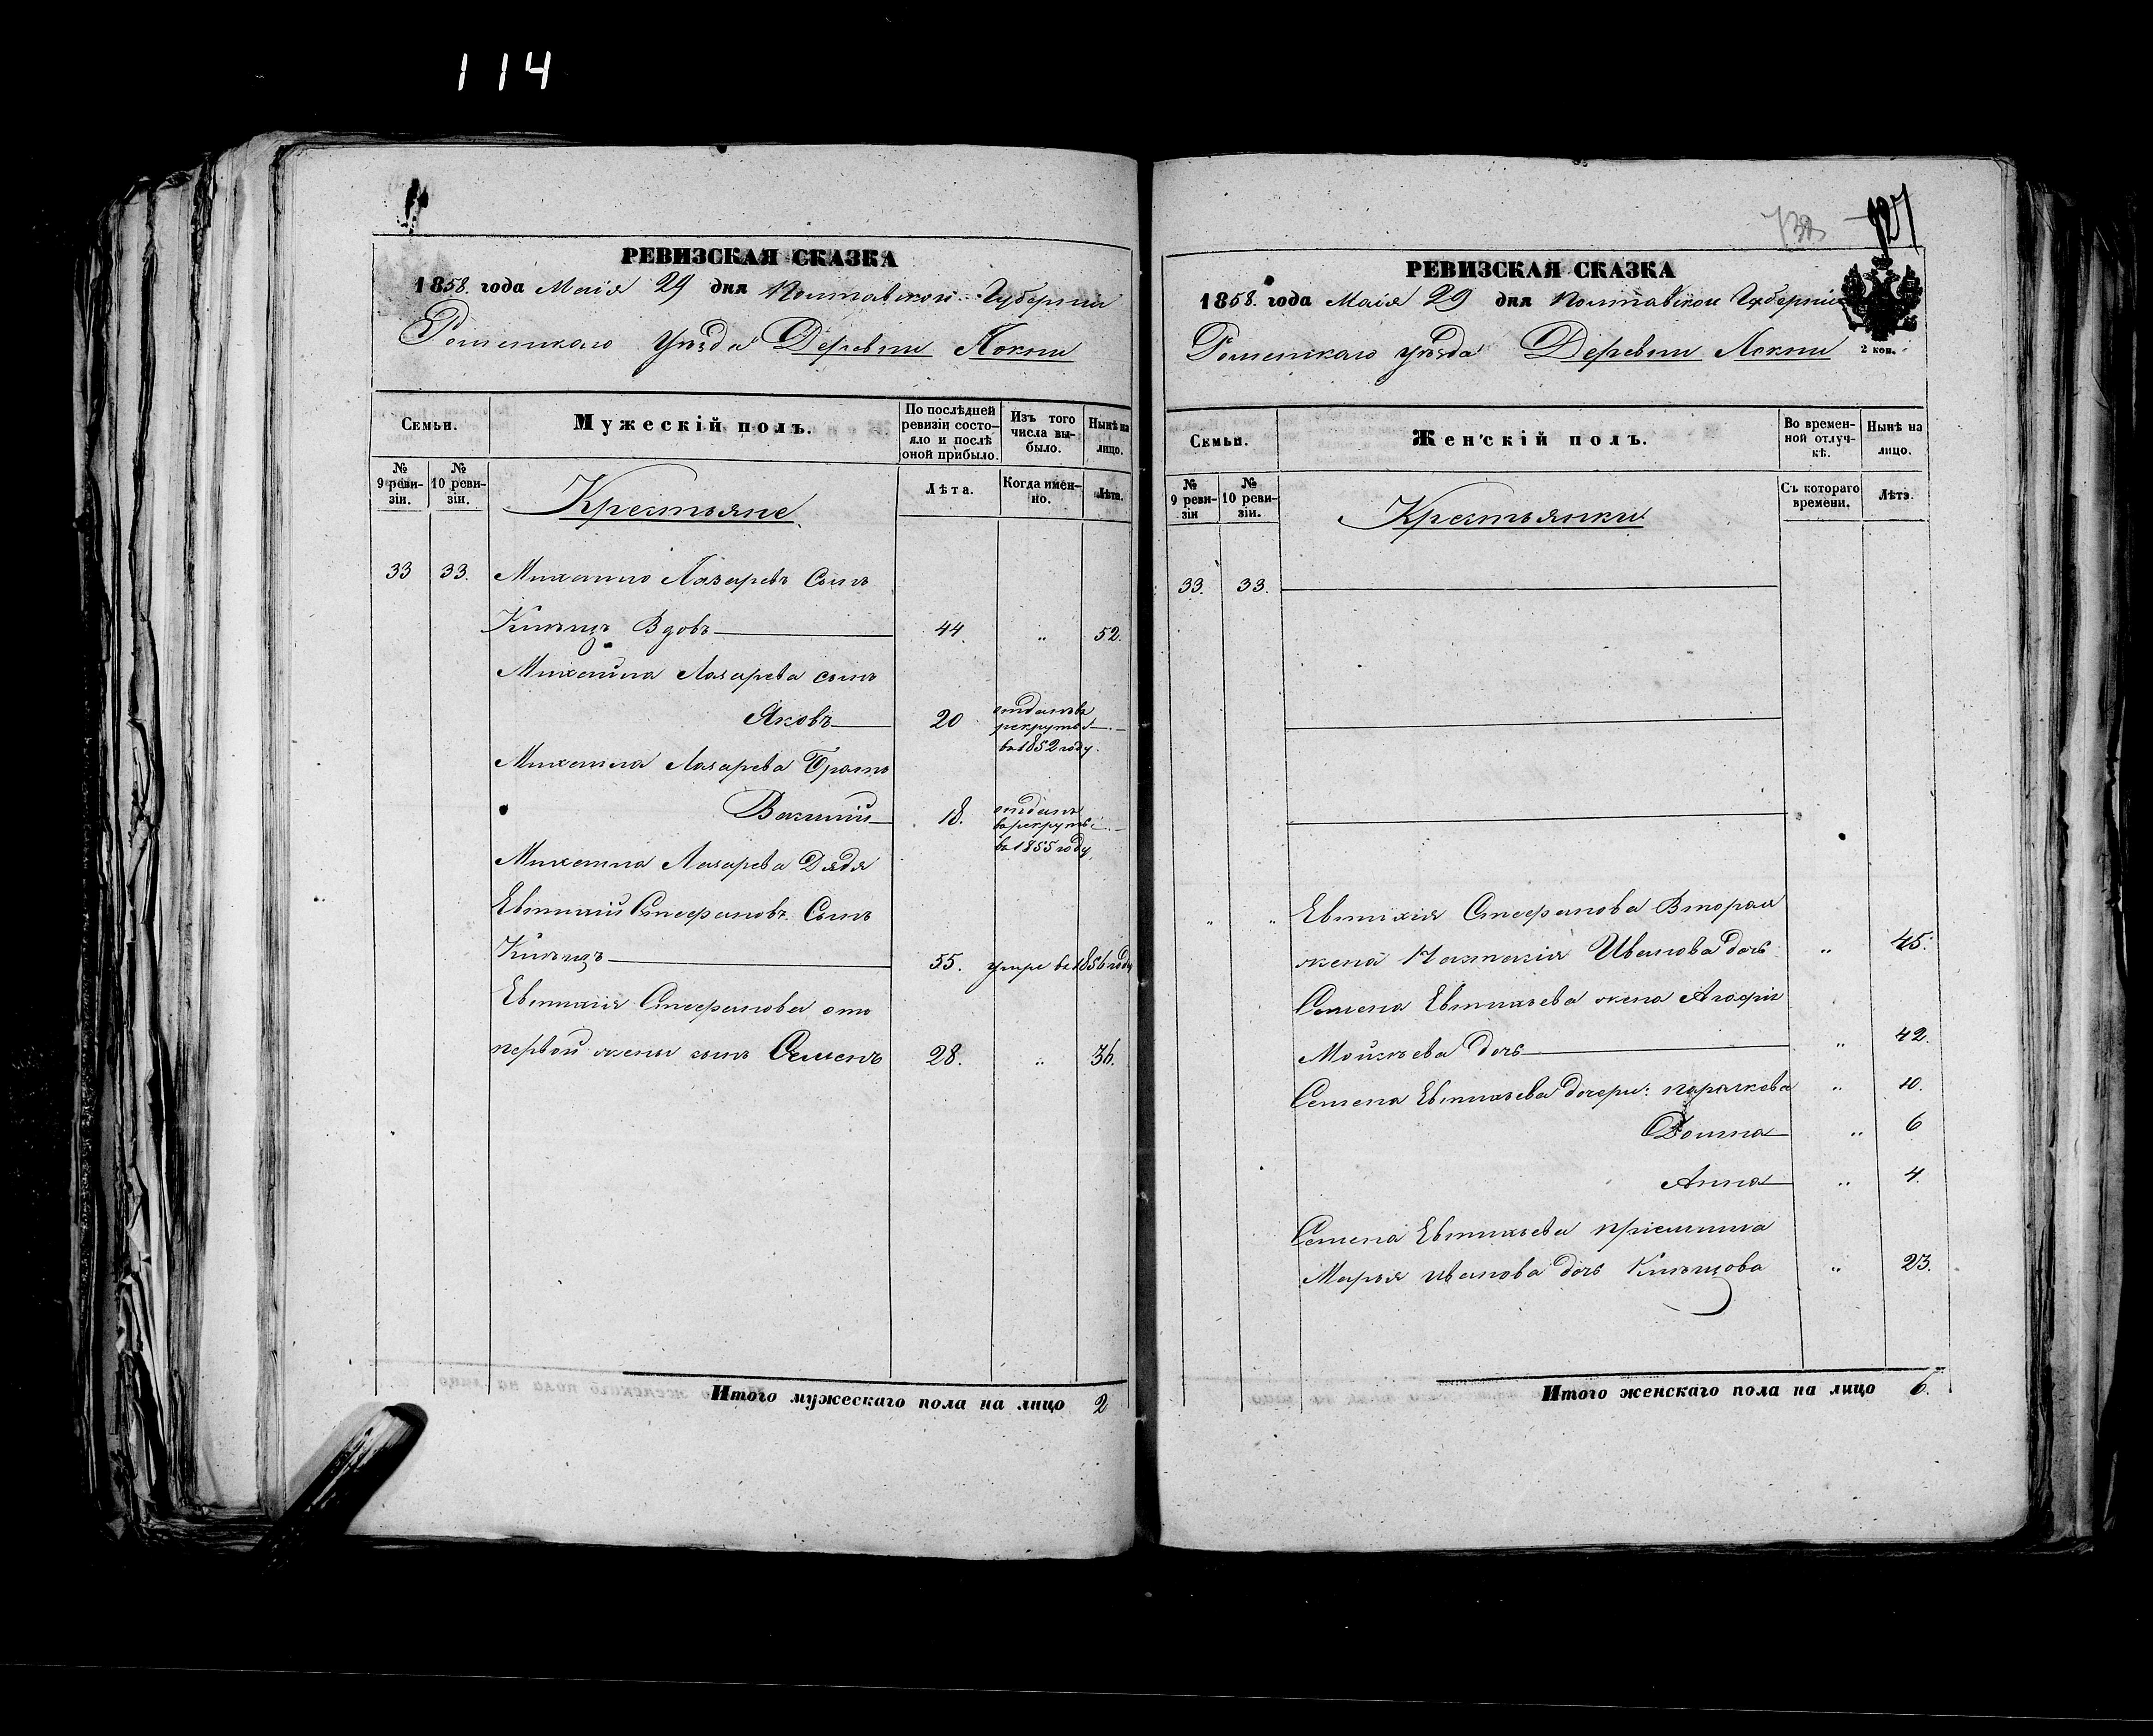 114
РЕВИЗСКАЯ СКАЗКА
1858. года Маія 29 дня Полтавской Губерніи
Роменскаго Уѣзда Деревни Локни
Семьи.
Мужескій полъ.
По послѣдней ревизіи состояло и послѣ оной прибыло.
Изъ того числа выбыло.
Нынѣ на лицо.
№ 9 ревизіи.
№ 10 ревизіи.
Крестьяне
Лѣта.
Когда именно.
Лѣта.
33 33. Михаило Лазаревъ Сынъ
Вдовъ 44 „ 52.
Михаила Лазарева сынъ
Яковъ 20 отданъ въ
рекруты
въ 1852 году.
Михаила Лазарева Братъ
18. отданъ
въ рекруты
въ 1855 году
Михаила Лазарева Дядя
Евтихій Стефановъ Сынъ
55. умре въ 1856 году
Евтихія Стефанова отъ
первой жены сынъ Семенъ 28. „ 36.
Итого мужескаго пола на лицо 2
727
РЕВИЗСКАЯ СКАЗКА
1858. года Маія 29 дня Полтавской Губерніи
Роменскаго уѣзда Деревни Локни
2 коп.
Семьи.
Женскій полъ.
Во временной отлучкѣ.
Нынѣ на лицо.
№ 9 ревизіи
№ 10 ревизіи.
Крестьянки
Съ котораго времени.
Лѣта.
33. 33.
„ „ Евтихія Стефанова Вторая
жена Иванова дочь „ 45.
Семена Евтихіева жена Агафія
Мойсѣева дочь „ 42.
Семена Евтихіева дочери: Параскева „ 10.
Домна „ 6
Анна „ 4.
Семена Евтихіева пріемышка
Марья Иванова дочь „ 23.
Итого женскаго пола на лицо 6.